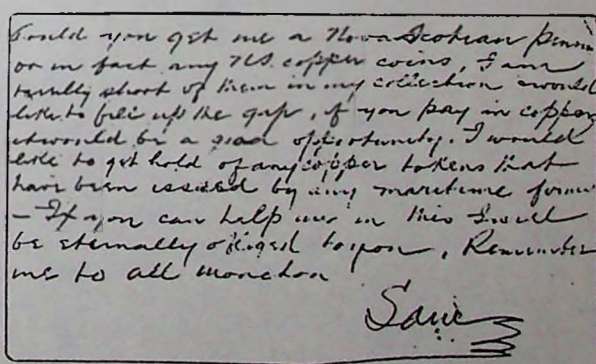 Could you get me a Nova Scotian penny
or in fact any N.S. copper coins, I am
short of them in my collection & would
like to fill up the gap, if you pay in copper
it would be a good opportunity. I would
like to get hold of any copper tokens that
have been issued by any maritime
- If you can help me in this I will
be eternally obliged to you, Remember
me to all moncton